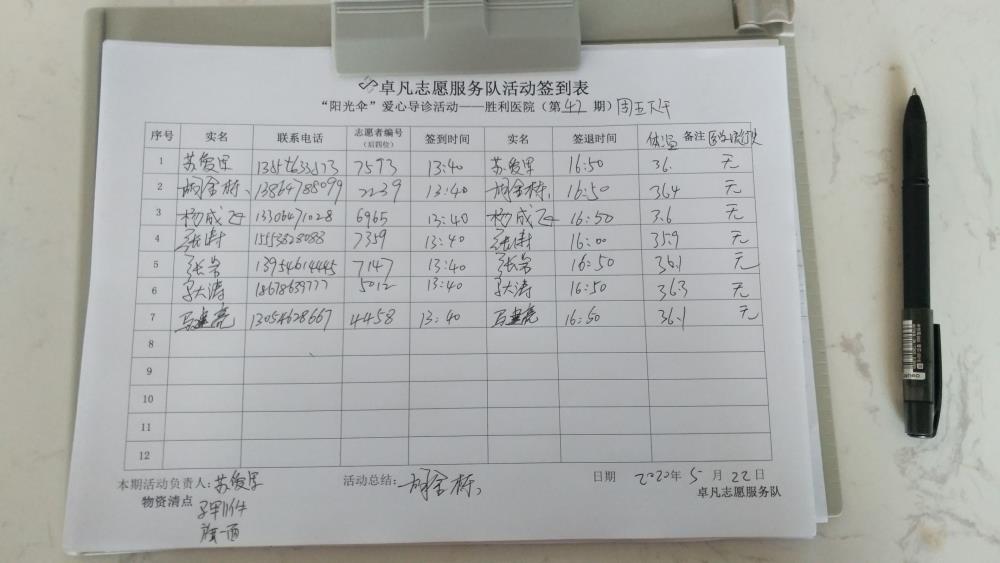 卓凡志愿服务队活动签到表
“阳光伞”爱心导诊活动——胜利医院（第42期）周五下午
序号 实名 联系电话 志愿者编号（后四位） 签到时间 实名 签退时间 体温 备注
1 苏爱军 7593 13:40 苏爱军 16:50 36. 无
2 胡金栋 13864788099 2239 13:40 胡金栋 16:50 36.4 无
3 杨成飞 13306471028 6965 13:40 杨成飞 16:50 3.6 无
4 张涛 15553828088 7359 13:40 张涛 16:00 35.9 无
5 13954614445 7147 13:40 16:50 36.1 无
6 大涛 18678639777 5012 13:40 大涛 16:50 36.3 无
7 马建亮 13054628667 4458 13:40 马建亮 16:50 36.1 无
8
9
10
11
12
本期活动负责人：苏爱军 活动总结：胡金栋 日期 2020年5月22日
物资清点 卓凡志愿服务队
旗一面